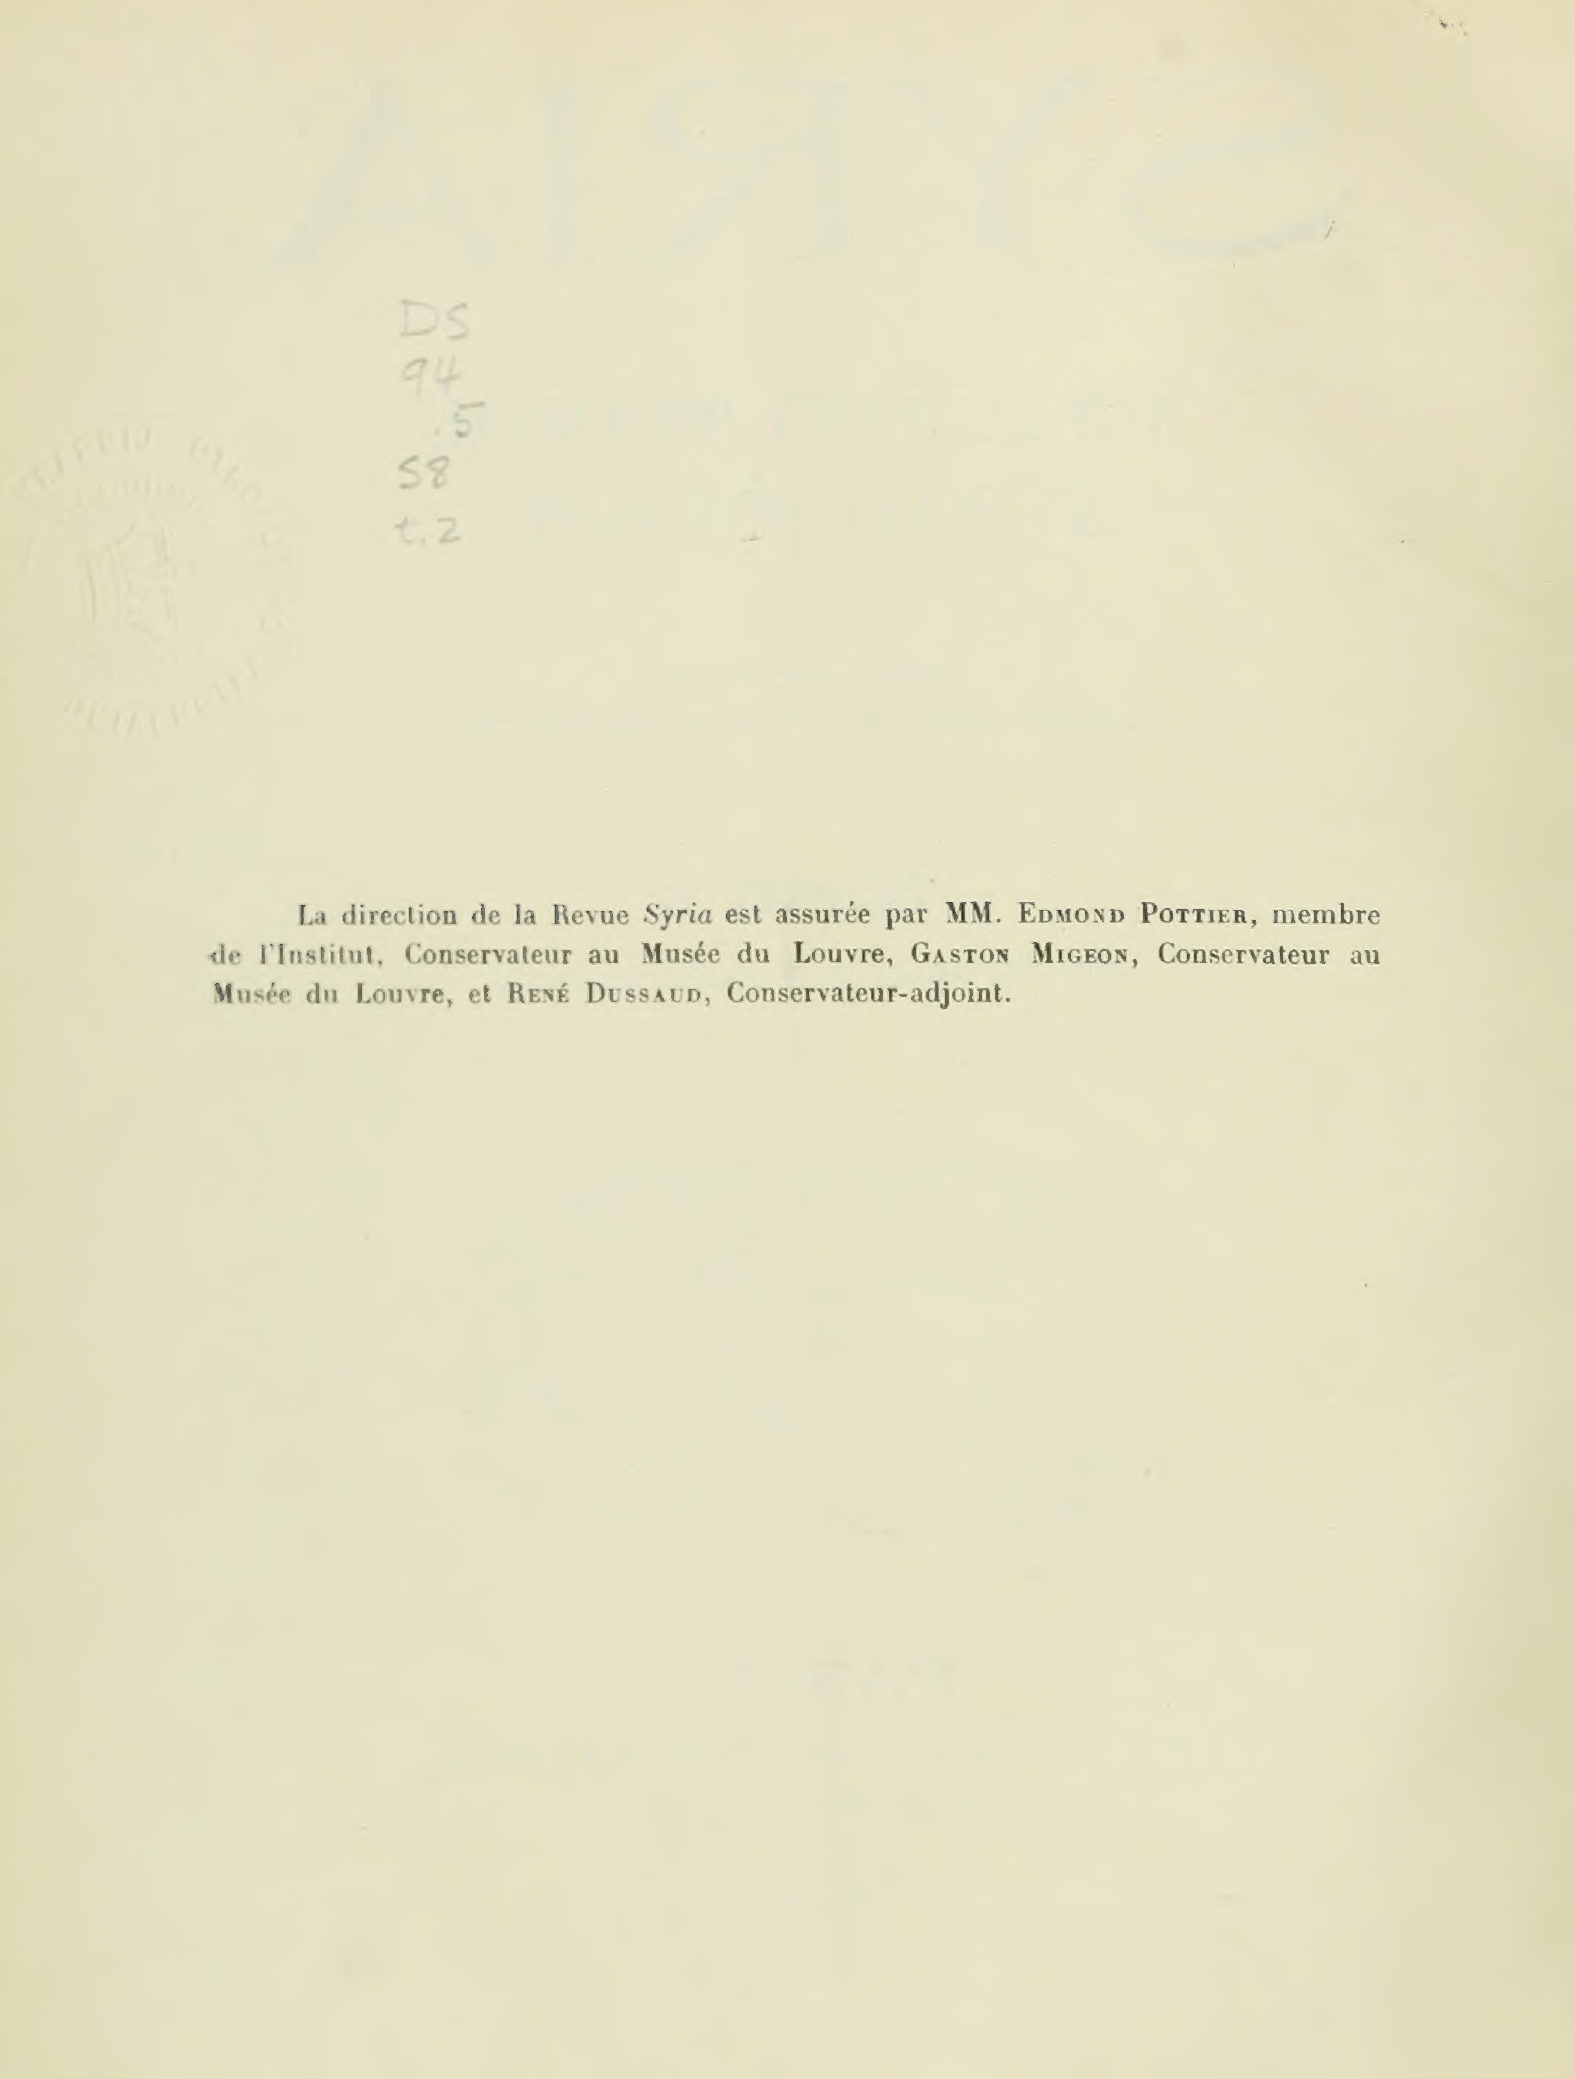 DS
94
.5
S8
t.2
La direction de la Revue Syria est assurée par MM. EDMOND POTTIER, membre
de l'Institut, Conservateur au Musée du Louvre, GASTON MIGEON, Conservateur au
Musée du Louvre, et RENÉ DUSSAUD, Conservateur-adjoint.